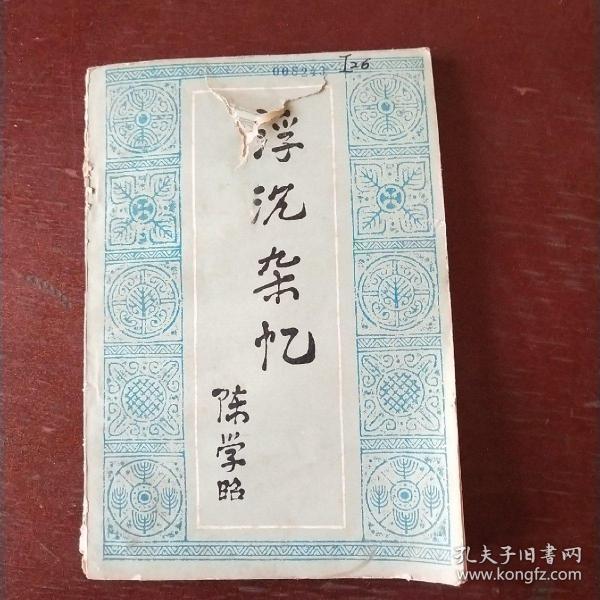 I26
浮沉杂忆
陈学昭
孔夫子旧書网
www.kongfz.com